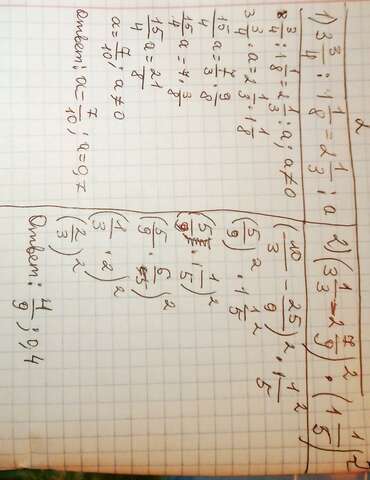 2
1) 3 3/4 : 1 1/8 = 2 1/3 : a
3 3/4 : 1 1/8 = 2 1/3 : a; a ≠ 0
3 3/4 · a = 2 1/3 · 1 1/8
15/4 a = 7/3 · 9/8
15/4 a = 7 · 3/8
15/4 a = 21/8
a = 7/10; a ≠ 0
Ответ: a = 7/10; a = 0,7
2) (3 1/3 - 2 7/9)² · (1 1/5)²
(10/3 - 25/9)² · 1 1/5²
(5/9)² · 1 1/5²
(5/9 · 1 1/5)²
(5/9 · 6/5)²
(1/3 · 2)²
(2/3)²
Ответ: 4/9; 0,4